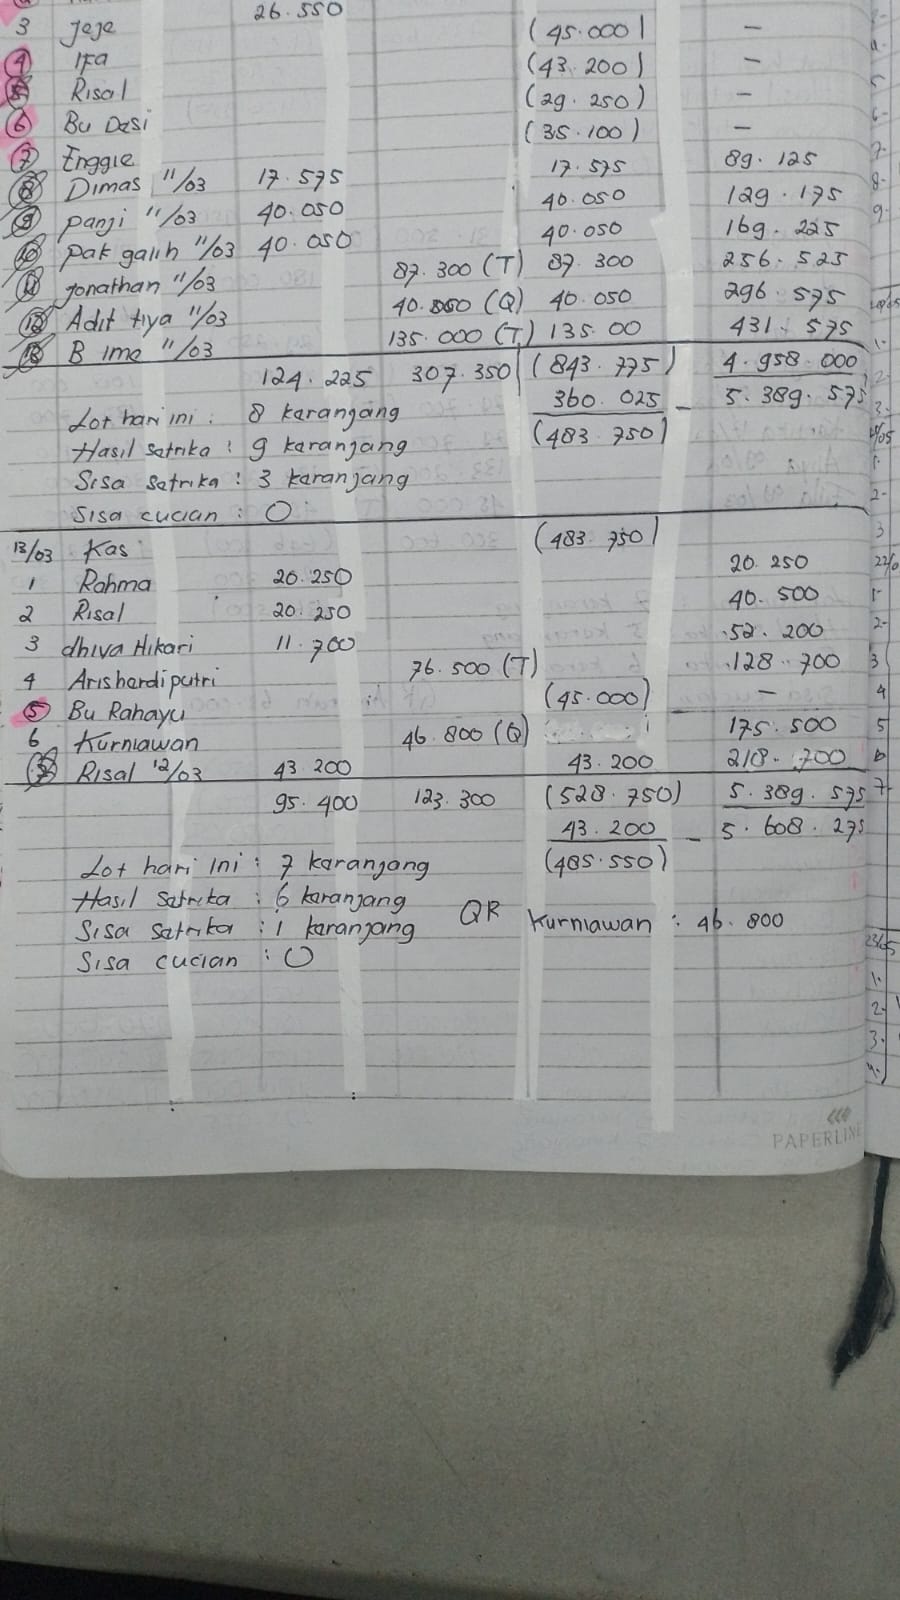 26.550
3 Jeje (45.000) —
4 Ifa (43.200) —
5 Risal (29.250) —
6 Bu Desi (35.100) —
7 Enggie 17.575 89.125
8 Dimas 11/03 17.575 40.050 129.175
9 Panji 11/03 40.050 40.050 169.225
10 Pak galih 11/03 40.050 87.300 (T) 87.300 256.525
11 Jonathan 11/03 40.050 (Q) 40.050 296.575
12 Adit tiya 11/03 135.000 (T) 135.00 431.575
13 B ime 11/03
124.225 307.350 (843.775) 4.958.000
Lot hari ini : 8 karanjang 360.025 – 5.389.575
Hasil satrika : 9 karanjang (483.750)
Sisa satrika : 3 karanjang
Sisa cucian : 0
13/03 Kas : (483.750)
1 Rahma 20.250 20.250
2 Risal 20.250 40.500
3 dhiva Hikari 11.700 52.200
4 Arishardi putri 76.500 (T) 128.700
5 Bu Rahayu (45.000) —
6 Kurniawan 46.800 (Q) 175.500
7 Risal 12/03 43.200 43.200 218.700
95.400 123.300 (528.750) 5.389.575
43.200 – 5.608.275
Lot hari ini : 7 karanjang (485.550)
Hasil satrika : 6 karanjang
Sisa satrika : 1 karanjang QR Kurniawan : 46.800
Sisa cucian : 0
PAPERLINE